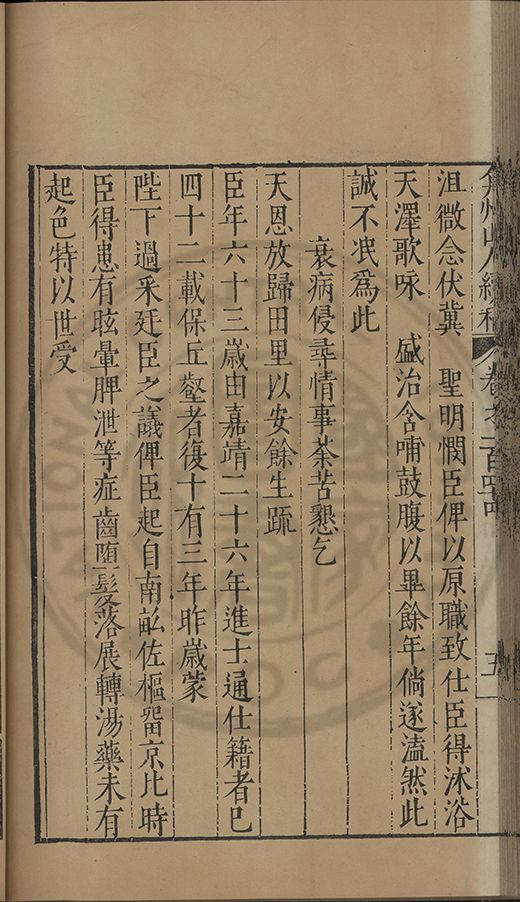 弇州山人續稿 卷之一百四四 五
沮微念伏冀 聖明憫臣俾以原職致仕臣得沐浴
天澤歌咏 盛治含哺鼓腹以畢餘年倘遂溘然此
誠不泯爲此
衰病侵尋情事荼苦懇乞
天恩放歸田里以安餘生疏
臣年六十三歲由嘉靖二十六年進士通仕籍者已
四十二載保丘壑者復十有三年昨歲蒙
陛下過采廷臣之議俾臣起自南畝佐樞留京比時
臣得患有眩暈脾泄等症齒墮髮落展轉湯藥未有
起色特以世受